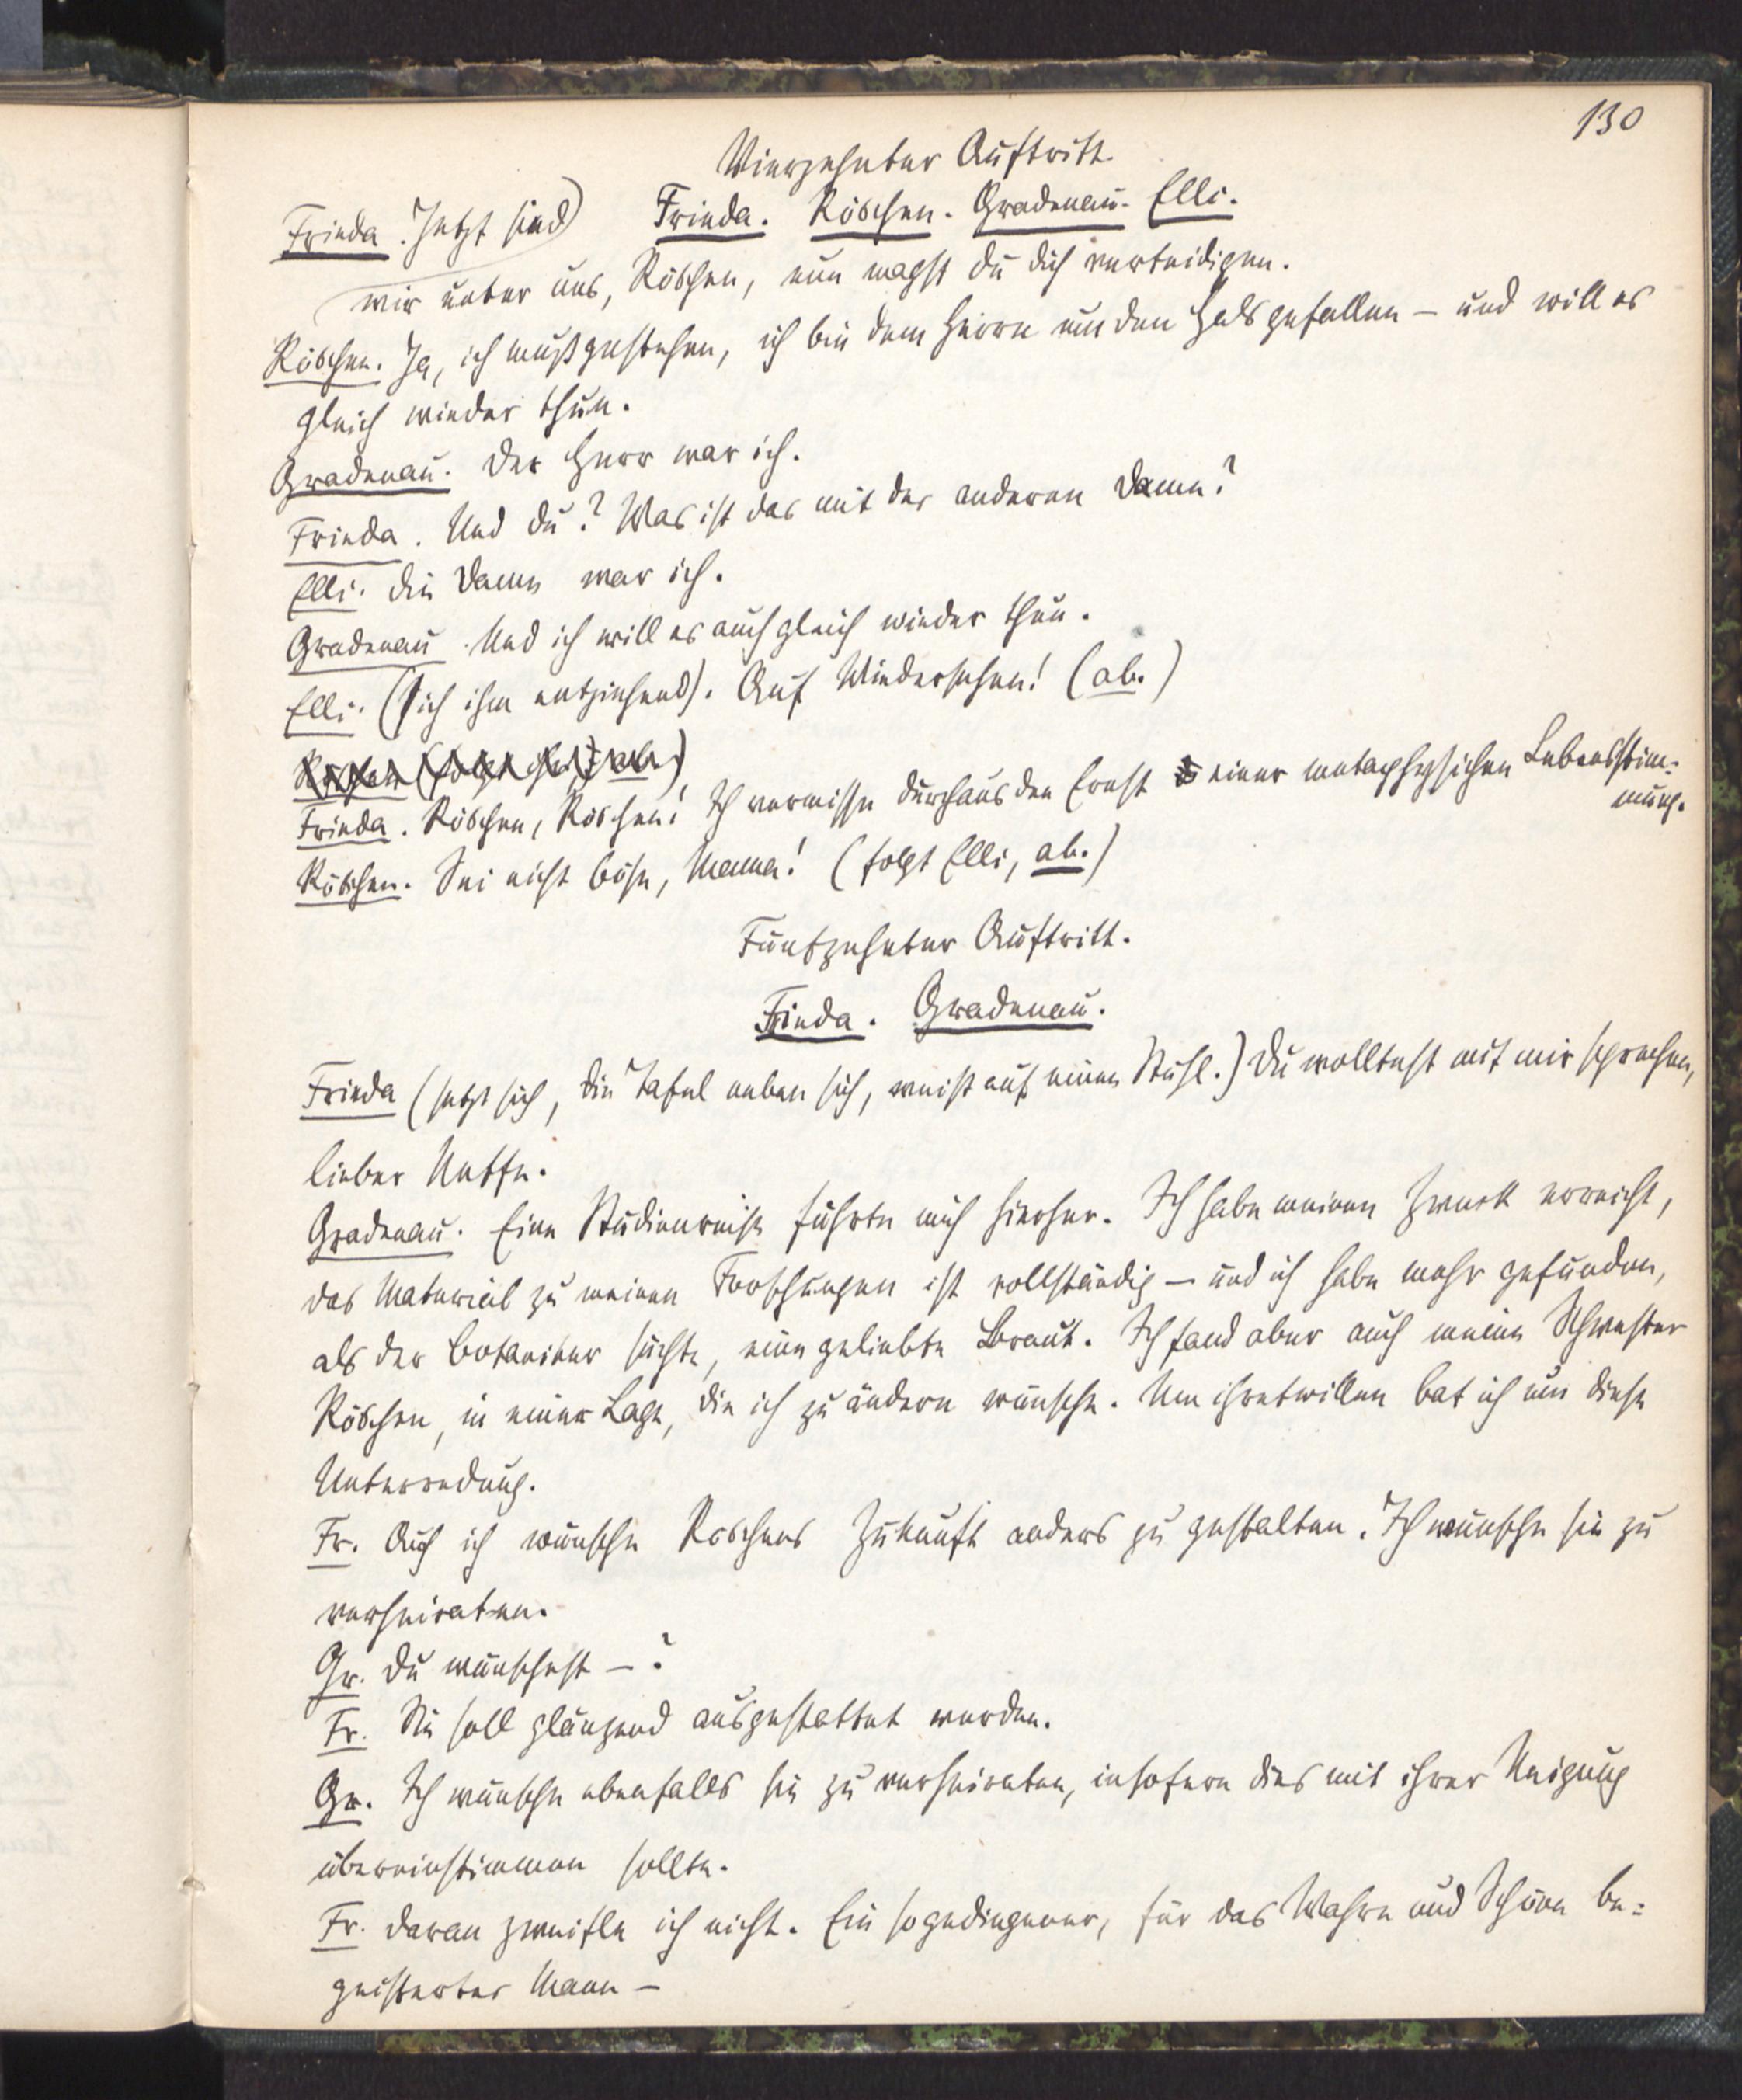 130
Vierzehnter Auftritt.
Frieda. Röschen. Gradenau. Elli.
Frieda. Jetzt sind
wir unter uns, Röschen, nun magst du dich verteidigen.
Röschen. Ja, ich muß gestehen, ich bin dem Herrn um den Hals gefallen – und will es
gleich wieder thun.
Gradenau. Der Herr war ich.
Frieda. Und du? Was ist das mit der anderen Dame?
Elli. Die Dame war ich.
Gradenau. Und ich will es auch gleich wieder thun.
Elli. (sich ihm entziehend). Auf Wiedersehen! (ab.)
Röschen (folgt ihr, ab.)
Frieda. Röschen, Röschen! Ich vermisse durchaus den Ernst einer metaphysischen Lebensstim-
mung.
Röschen. Sei nicht böse, Mama! (folgt Elli, ab.)
Fünfzehnter Auftritt.
Frieda. Gradenau.
Frieda (setzt sich, die Tafel neben sich, weist auf einen Stuhl.) Du wolltest mit mir sprechen,
lieber Neffe.
Gradenau. Eine Studienreise führte mich hierher. Ich habe meinen Zweck erreicht,
das Material zu meinen Forschungen ist vollständig – und ich habe mehr gefunden,
als der Botaniker suchte, eine geliebte Braut. Ich fand aber auch meine Schwester
Röschen, in einer Lage, die ich zu ändern wünsche. Um ihretwillen bat ich um diese
Unterredung.
Fr. Auch ich wünsche Röschens Zukunft anders zu gestalten. Ich wünsche sie zu
verheiraten.
Gr. Du wünschest – ?
Fr. Sie soll glänzend ausgestattet werden.
Gr. Ich wünsche ebenfalls sie zu verheiraten, insofern dies mit ihrer Neigung
übereinstimmen sollte.
Fr. Daran zweifle ich nicht. Ein so gediegener, für das Wahre und Schöne be-
geisterter Mann –